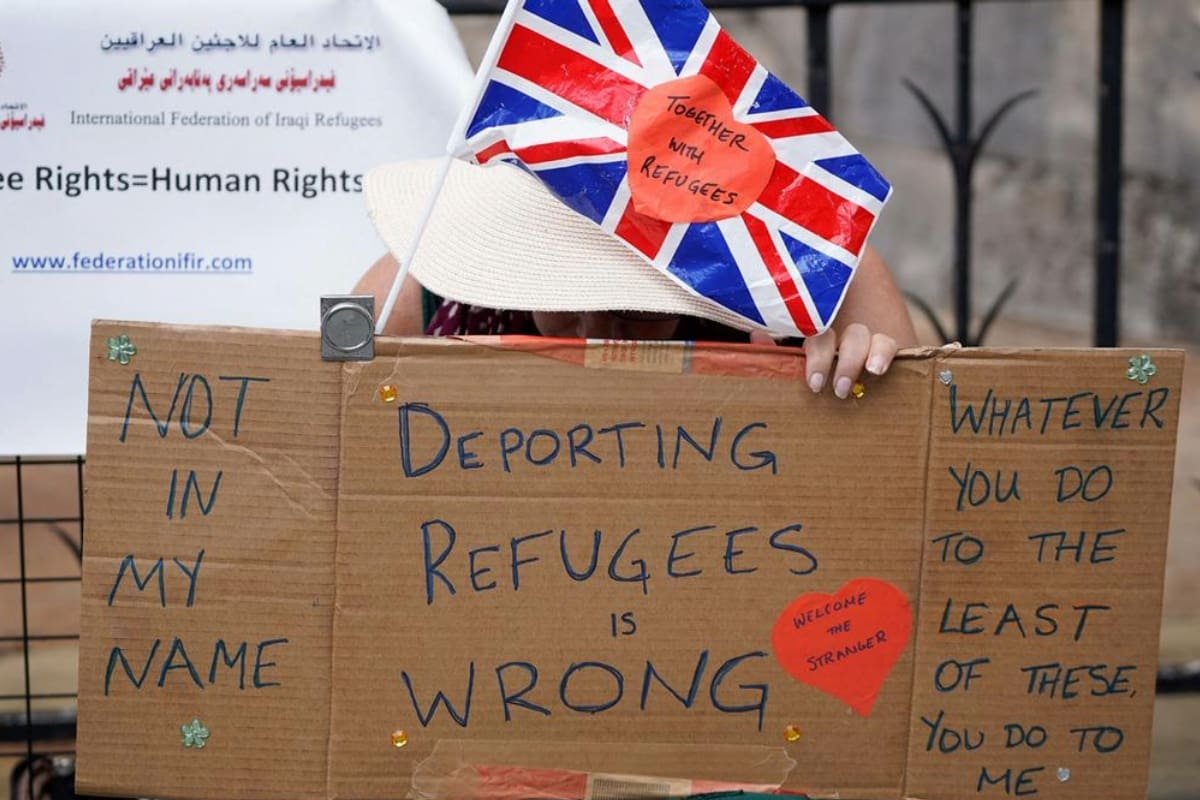 الاتحاد العام للاجئين العراقيين
فیدراسیۆنی سەراسەری پەنابەرانی عێراقی
International Federation of Iraqi Refugees
ee Rights=Human Rights
www.federationifir.com
TOGETHER
WITH
REFUGEES
NOT
IN
MY
NAME
DEPORTING
REFUGEES
IS
WRONG
WELCOME
THE
STRANGER
WHATEVER
YOU DO
TO THE
LEAST
OF THESE,
YOU DO TO
ME